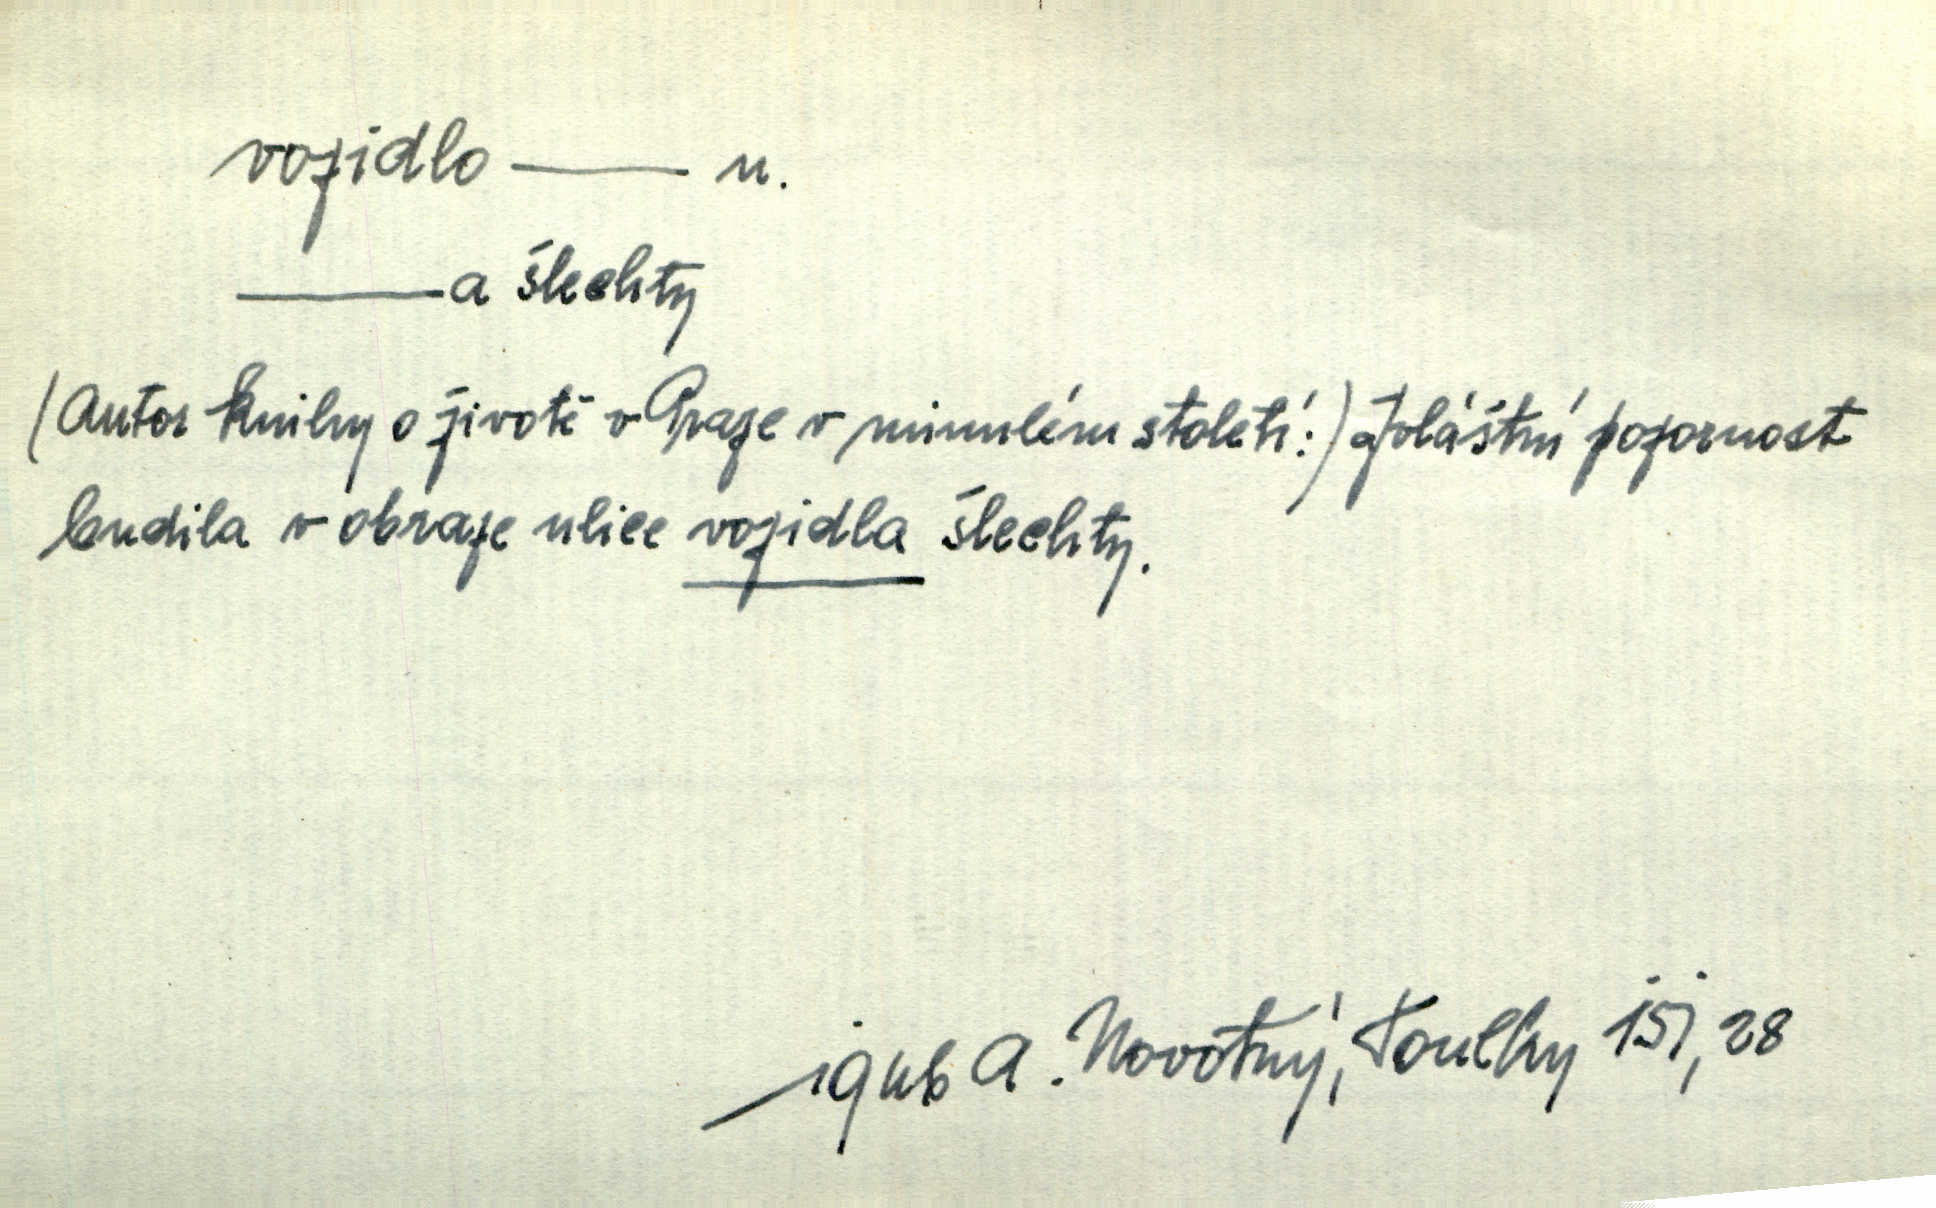 vozidlo ——— n.
———a šlechty
(Autor knihy o životě v Praze v minulém století:) Zvláštní pozornost
budila v obraze ulice vozidla šlechty.
A. Novotný, Toulky 28